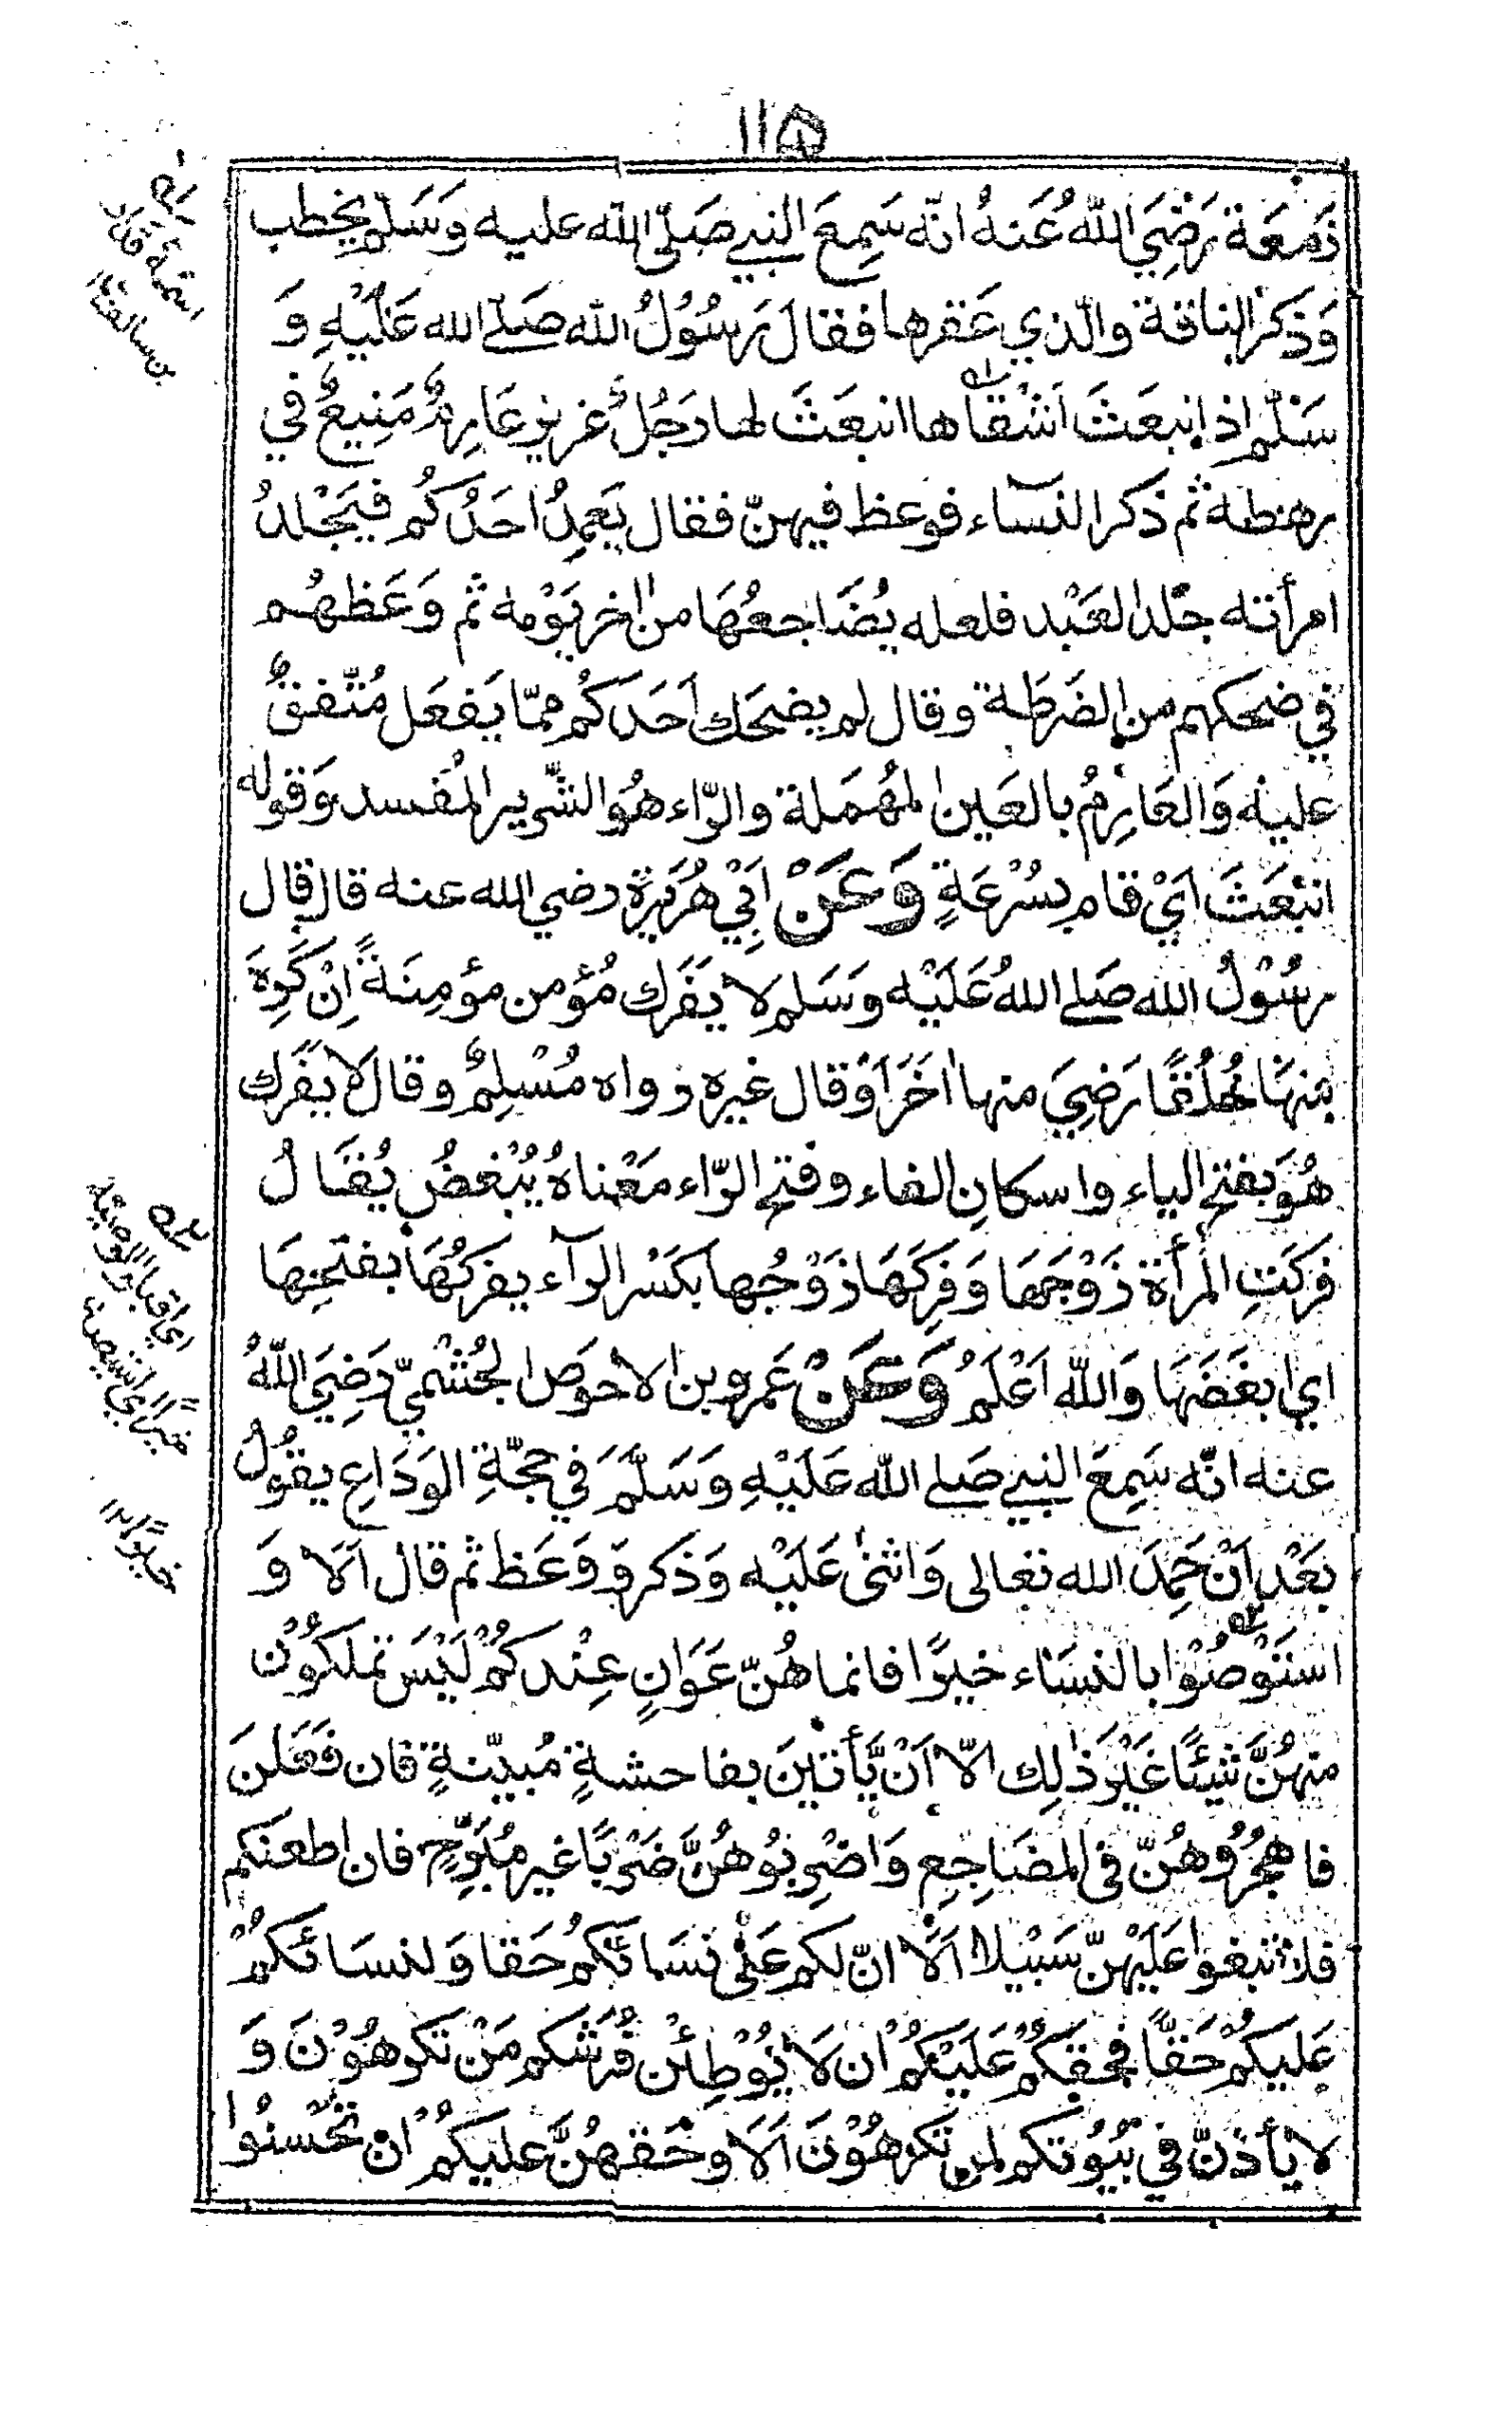 ١١٥
زَمعَة رَضِيَ اللّٰهُ عَنهُ انّه سَمِعَ النبي صَلّى اللّٰه عليه وَسَلم يخطب
وَذكر الناقة والّذي عَقرها فقالَ رَسُوُلُ الله صَلى الله عَلَيْهِ وَ
سَلّم اذ انبعَثَ اَشْقاها انبعَثَ لها رَجُلٌ عزيز عَارِمٌ مَنِيعٌ في
رهطه ثم ذكر النسآء فوعظ فيهنّ فقال يَعمِدُ احَدُكُم فيَجْلدُ
امرأته جَلدَ العَبْد فلعله يُضَاجعُهَا من اٰخر يَوْمه ثم وَعَظهُم
في ضحكهم من الضَرطَة وقال لم يضحَك اَحَدكُم ممّا يَفعَل مُتّفقٌ
عليه وَالعَارِمُ بالعَين المهُمَلة والرّاء هُوَ الشّرير المُفسد وَقوله
انبَعَثَ اَيْ قام بسُرْعَةٍ وَعَنْ اَبِيْ هُرَيرَة رضي الله عنه قال قال
رسُوْلُ الله صَلى اللهُ عَلَيْه وَسَلم لا يَفرَك مُؤمن مؤمِنَةً اِنْ كَرِهَ
مِنهَا خُلُقًا رَضِيَ منها اٰخَرَ اَوْ قال غيره رواه مُسْلِمٌ وقالَ لا يفْرَك
هُوَ بفتح الياء واسكانِ الفاء وفتح الرّاء مَعْناهُ يُبْغضُ يُقَالُ
فرَكَتِ المرأة زَوْجَهَا وَفرِكَهَا زَوْجُها بكَسْر الرآء يفركُهَا بفتحِهَا
اي ابغَضَهَا وَاللّه اَعْلَمُ وَعَنْ عَمرو بن الاحوَص الجُشْميّ رَضِيَ اللّٰهُ
عنه انّه سَمِعَ النبي صَلى اللّٰه عَلَيْهِ وَسَلَّمَ في حجّةِ الوَدَاعِ يقُولُ
بَعْد اَنْ حَمِدَ الله تعالى وَاثنٰى عَلَيْه وَذكر وَوَعَظ ثم قال اَلا وَ
استَوْصُوْا بالنسَاء خيرًا فانما هُنّ عَوَانٍ عِنْدكُمْ لَيْسَ تملكوُن
منهُنَّ شَيْئًا غَيْرَ ذٰلِك الاّ اَنْ يَّأتينَ بفاحشةٍ مُبيّنةٍ فان فَعَلنَ
فاهجُرُوهُنّ فى المضَاجِعِ وَاضْرِبُوهُنَّ ضَرْبًا غير مُبَرِّحٍ فان اطعنكم
فلا تبغوا عَلَيْهِنّ سَبيْلا اَلاَ انّ لكم عَلٰى نسَائكُم حَقا وَلنسَائكُمْ
عَليكُمْ حَقًّا فحقكُمْ عَلَيْكُمْ ان لَا يُوْطِئن فُرُشَكم مَنْ تكرهُوْنَ وَ
لا يأذنّ في بُيُوتكم لمن تكرهُوْنَ اَلَا وحَقهُنَّ عليكمْ ان تحْسنُوا